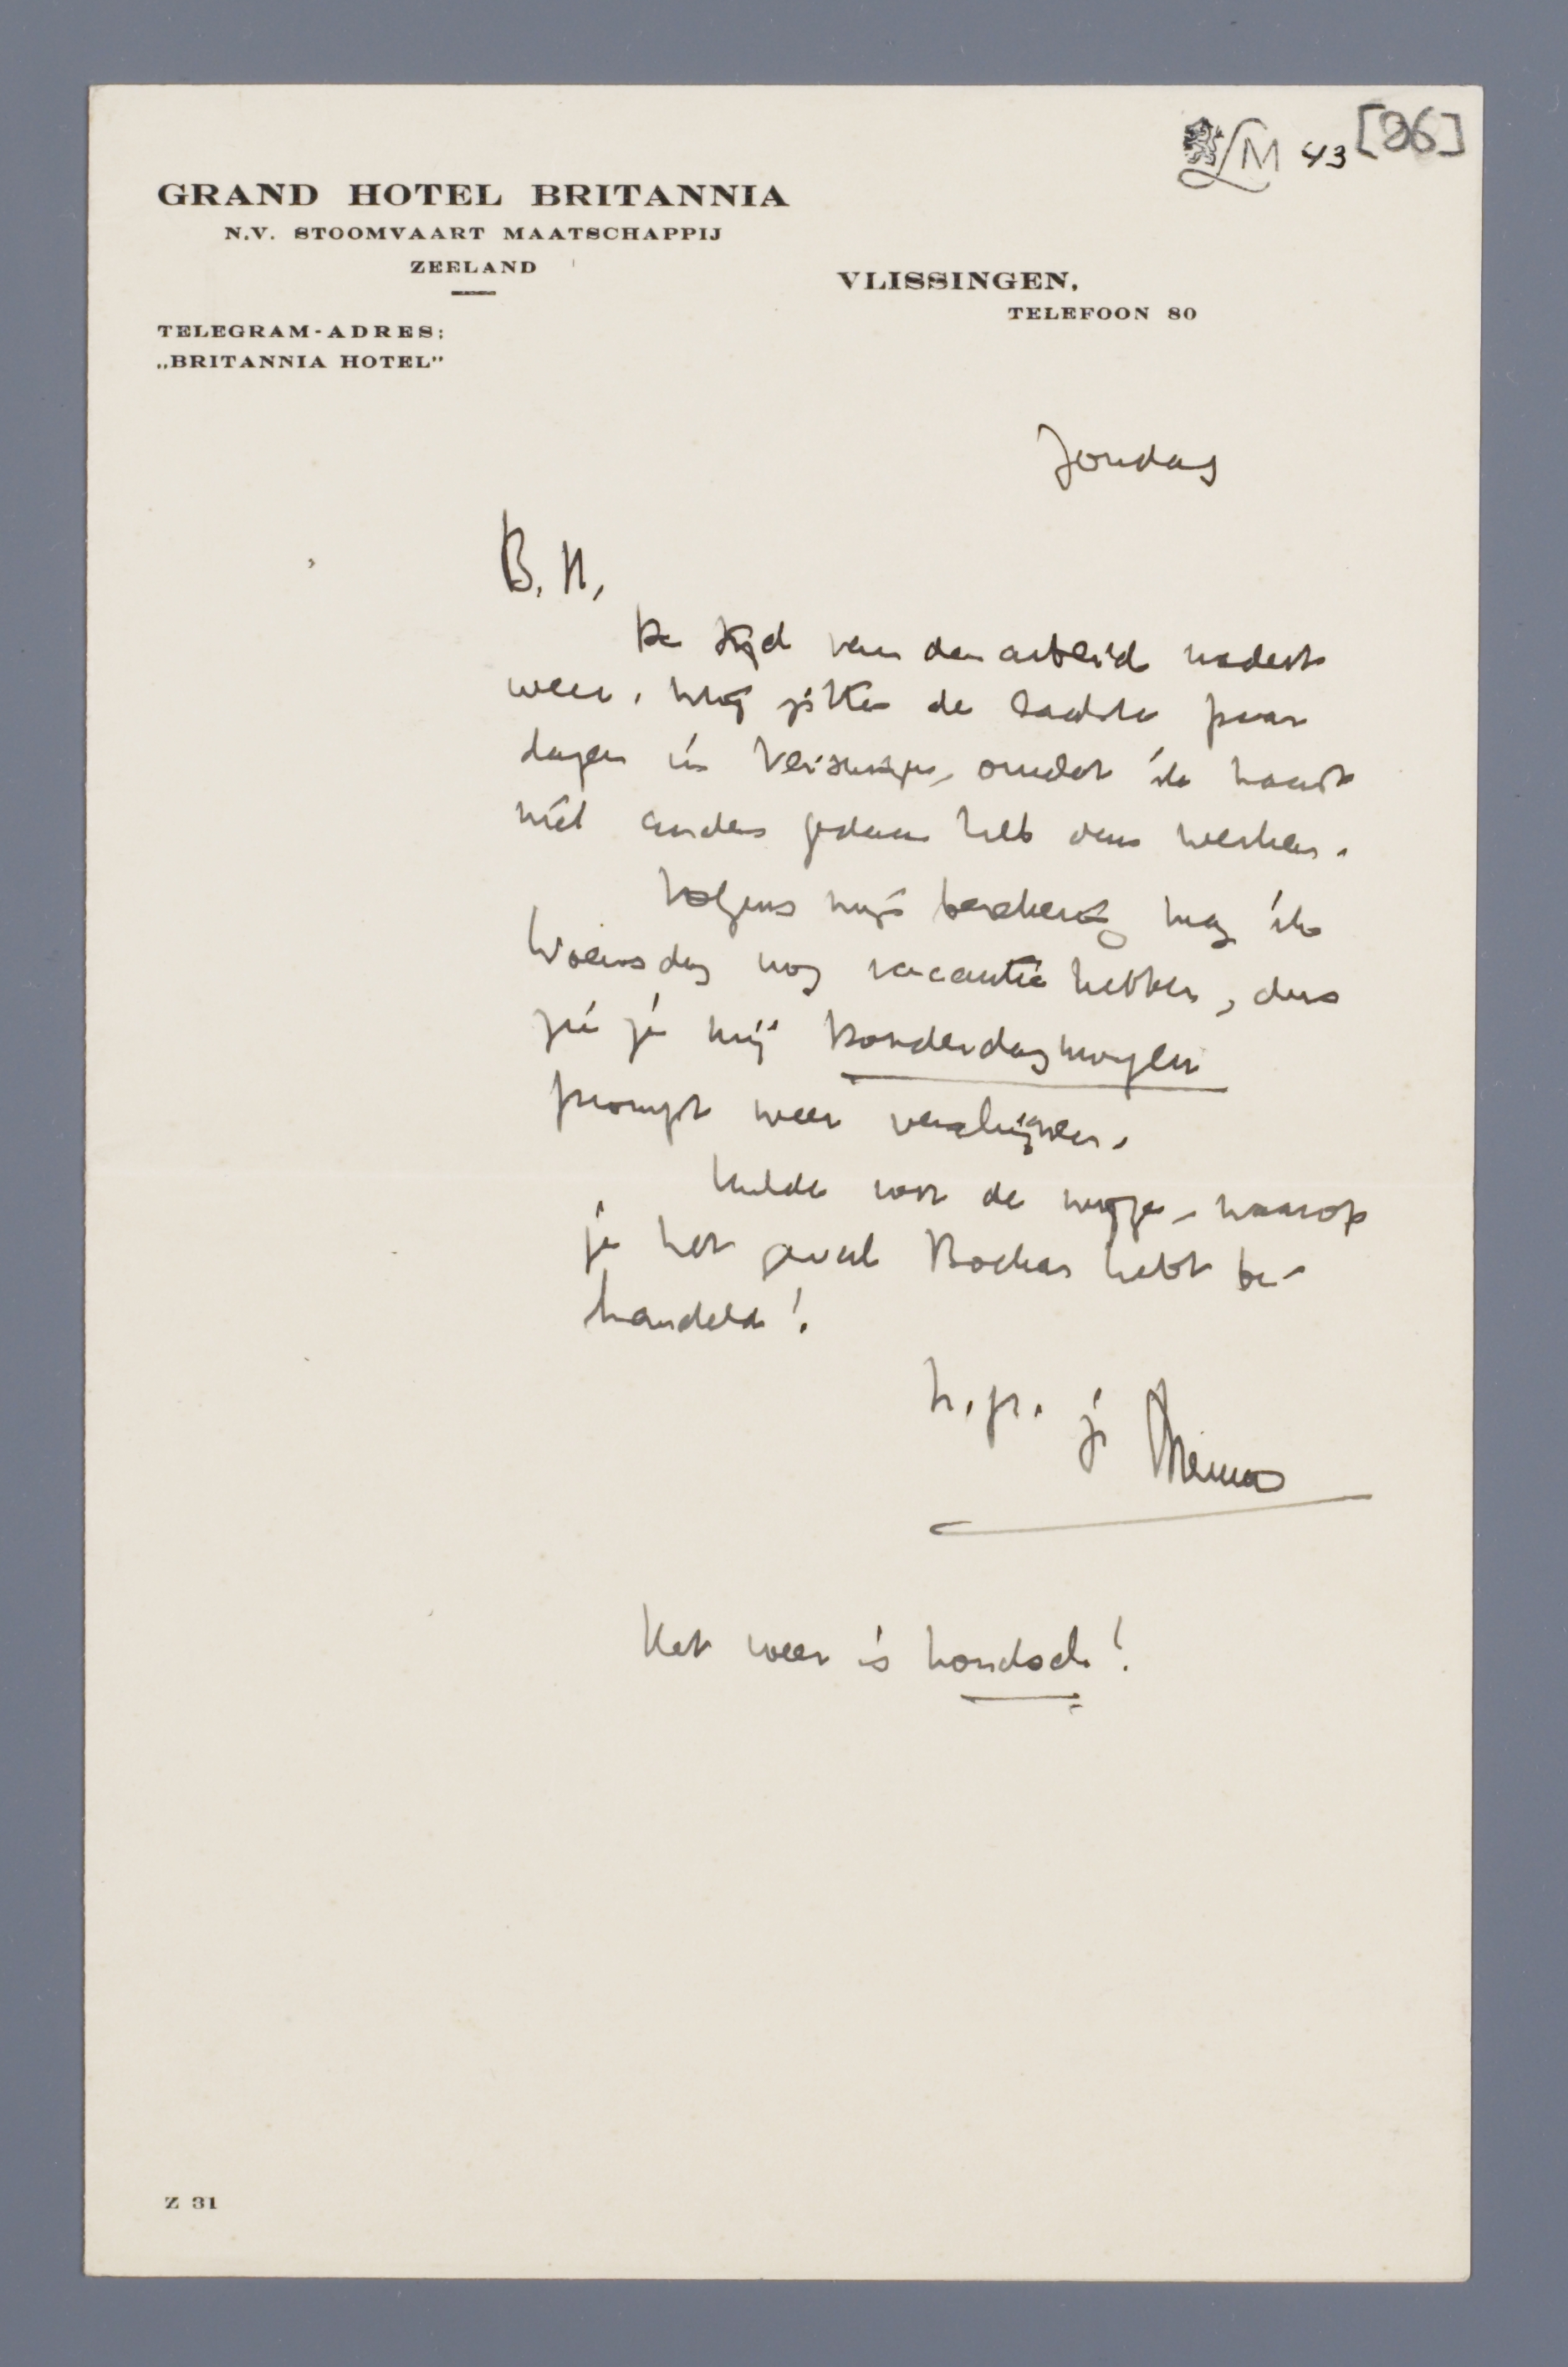 LM 43 [86]
GRAND HOTEL BRITANNIA
N.V. STOOMVAART MAATSCHAPPIJ
ZEELAND
VLISSINGEN,
TELEFOON 80
TELEGRAM-ADRES:
„BRITANNIA HOTEL”
Zondag
B. H,
De tijd van den arbeid nadert
weer. Wij zitten de laatste paar
dagen in Vlissingen, omdat ik haast
niet anders gedaan heb dan werken.
Volgens mijn berekening mag ik
Woensdag nog vacantie hebben, dus
zie je mij Donderdagmorgen
prompt weer verschijnen.
Hulde voor de wijze, waarop
je het geval Bockas hebt be-
handeld!
h. gr. je Menno
Het weer is hondsch!
Z 31